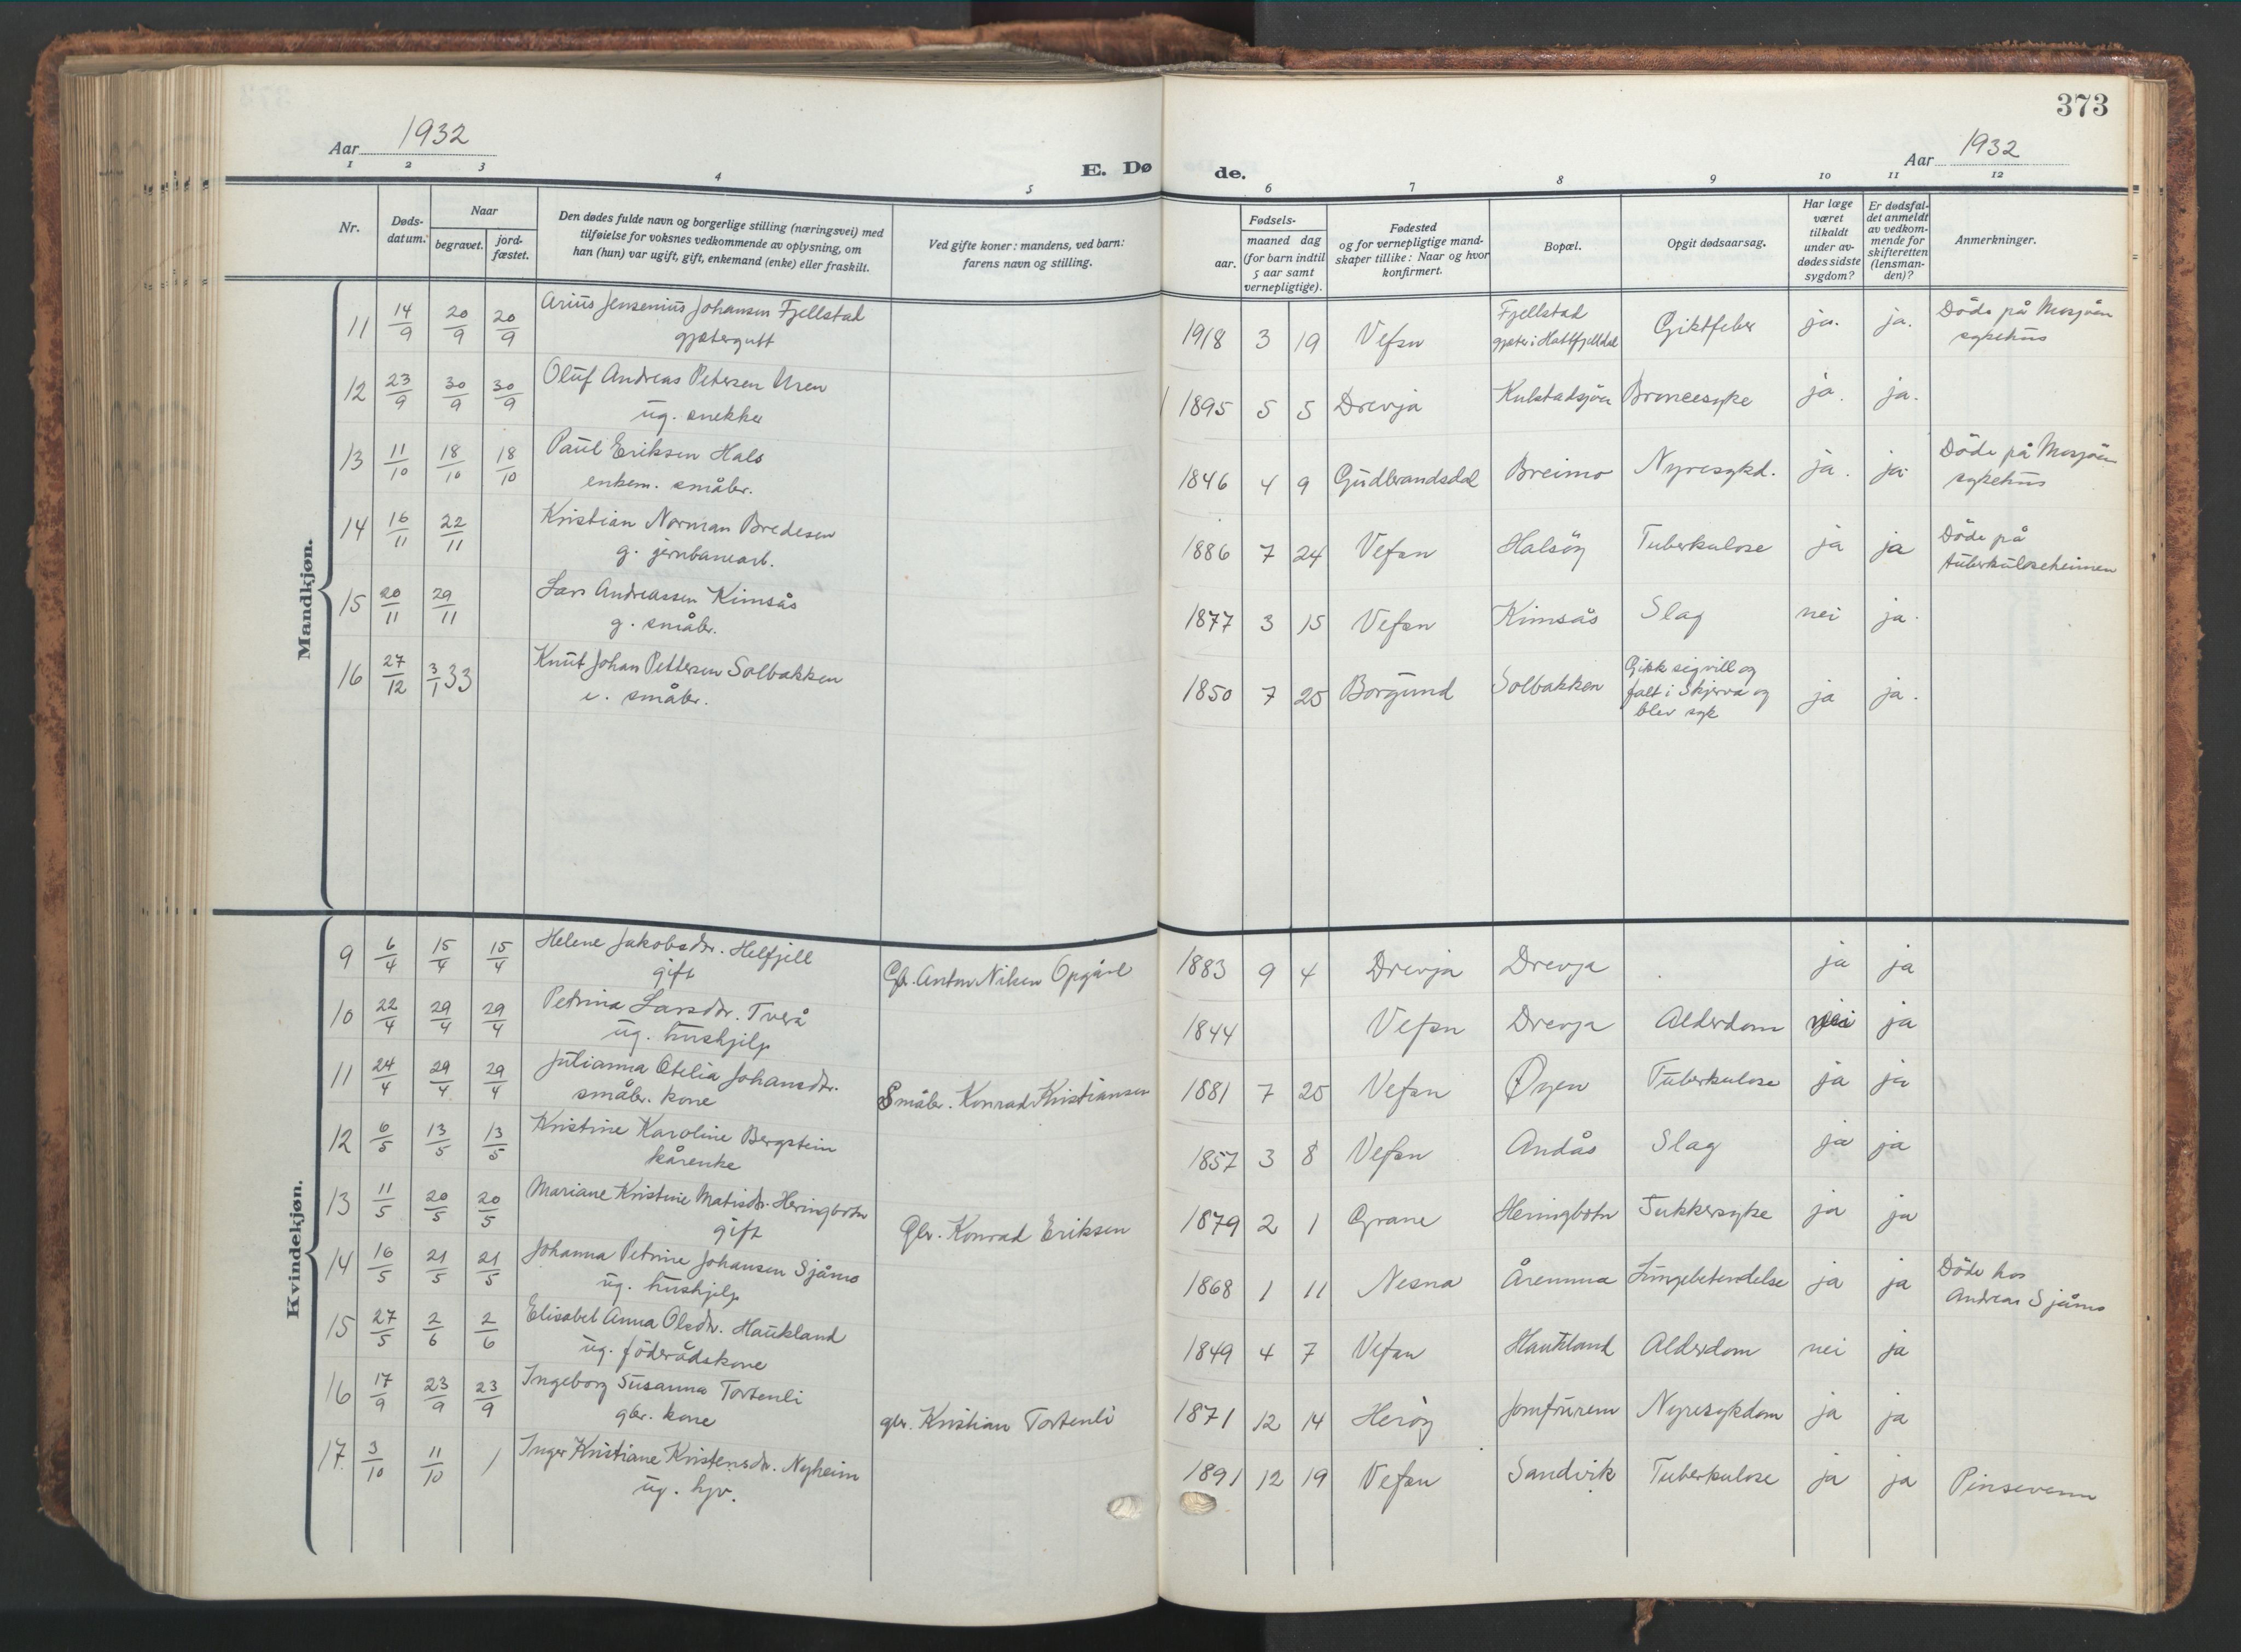 373
Aar 1932
Aar 1932
E. Dø de.
1 2 3 4 5 6 7 8 9 10 11 12
Nr.
Døds-
datum.
Naar
begravet.
jord-
fæstet.
Den dødes fulde navn og borgerlige stilling (næringsvei) med
tilføielse for voksnes vedkommende av oplysning, om
han (hun) var ugift, gift, enkemand (enke) eller fraskilt.
Ved gifte koner: mandens, ved barn:
farens navn og stilling.
Fødsels-
aar.
maaned dag
(for barn indtil
5 aar samt
vernepligtige).
Fødested
og for vernepligtige mand-
skaper tillike: Naar og hvor
konfirmert.
Bopæl.
Opgit dødsaarsag.
Har læge
været
tilkaldt
under av-
dødes sidste
sygdom?
Er dødsfal-
det anmeldt
av vedkom-
mende for
skifteretten
(lensman-
den)?
Anmerkninger.
Mandkjøn.
11 14/9 20/9 20/9 Arius Jensenius Johansen Fjellstad
gjætergutt
1918 3 19 Vefsn Fjellstad
gjæter i Hattfjelldal Giktfeber ja. ja. Döde på Mosjöen
sykehus
12 23/9 30/9 30/9 Oluf Andreas Petersen Uren
ug. snekker
1895 5 5 Drevja Kulstadsjöen Broncesyke ja. ja.
13 11/10 18/10 18/10 Paul Eriksen Hals
enkem. småbr.
1846 4 9 Gudbrandsdal Breimo Nyresykd. ja. ja. Döde på Mosjöen
sykehus
14 16/11 22/11 Kristian Norman Bredesen
g. jernbanearb.
1886 7 24 Vefsn Halsöy Tuberkulose ja ja Döde på
tuberkuloseheimen
15 20/11 29/11 Lars Andreassen Kimsås
g. småbr.
1877 3 15 Vefsn Kimsås Slag nei ja.
16 27/12 3/1 33 Knut Johan Pettersen Solbakken
e. småbr.
1850 7 25 Borgund Solbakken Gikk sig vill og
falt i Skjerva og
blev syk ja ja.
Kvindekjøn.
9 6/4 15/4 15/4 Helene Jakobsdtr. Helfjell
gift
Gbr. Anton Nilsen Opgård 1883 9 4 Drevja Drevja ja ja
10 22/4 29/4 29/4 Petrina Larsdtr. Tverå
ug. hushjelp
1844 Vefsn Drevja Alderdom nei ja
11 24/4 29/4 29/4 Julianna Otelia Johansdtr.
småbr. kone
Småbr. Konrad Kristiansen 1881 7 25 Vefsn Øyen Tuberkulose ja ja
12 6/5 13/5 13/5 Kristine Karoline Bergstein
kårenke
1857 3 8 Vefsn Andås Slag ja ja
13 11/5 20/5 20/5 Mariane Kristine Matisdtr. Heringbotn
gift
Gbr. Konrad Eriksen 1879 2 1 Grane Heringbotn Sukkersyke ja ja
14 16/5 21/5 21/5 Johanna Petrine Johansen Sjåmo
ug. hushjelp
1868 1 11 Nesna Åremma Lungebetendelse ja ja Döde hos
Andreas Sjåmo
15 27/5 2/6 2/6 Elisabet Anna Olsdtr. Haukland
ug. föderådskone
1849 4 7 Vefsn Haukland Alderdom nei ja
16 17/9 23/9 23/9 Ingeborg Susanna Tortenli
gbr. kone
gbr. Kristian Tortenli 1871 12 14 Heröy Jomfrurem Nyresykdom ja ja
17 3/10 11/10 / Inger Kristiane Kristensdtr. Nyheim
ug. hjv.
1891 12 19 Vefsn Sandvik Tuberkulose ja ja Pinsevenn